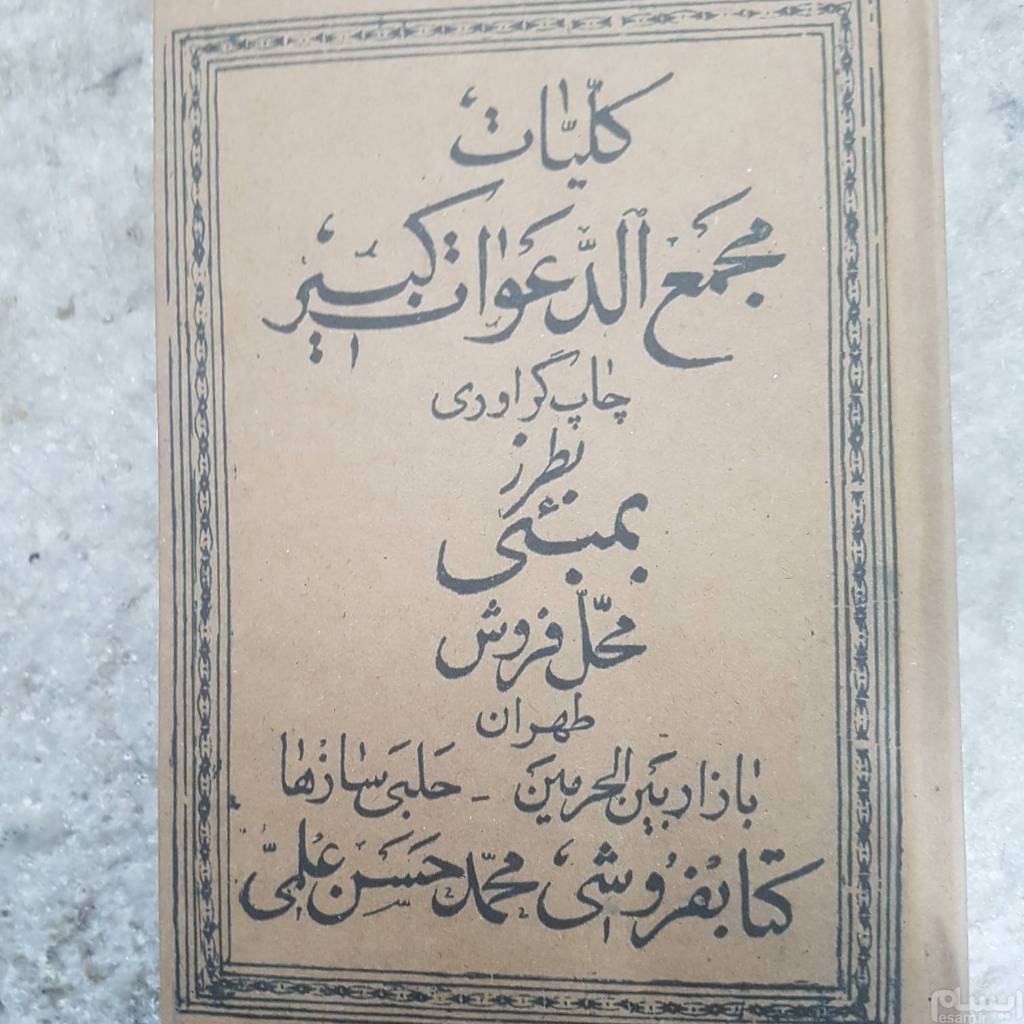 کلّیات
مجمع الدّعوات کبیر
چاپ گراوری
بطرز
بمبئی
محلّ فروش
طهران
بازار بین الحرمین - حلبی سازها
کتابفروشی محمّد حسن علمی
ایسام
esam.ir